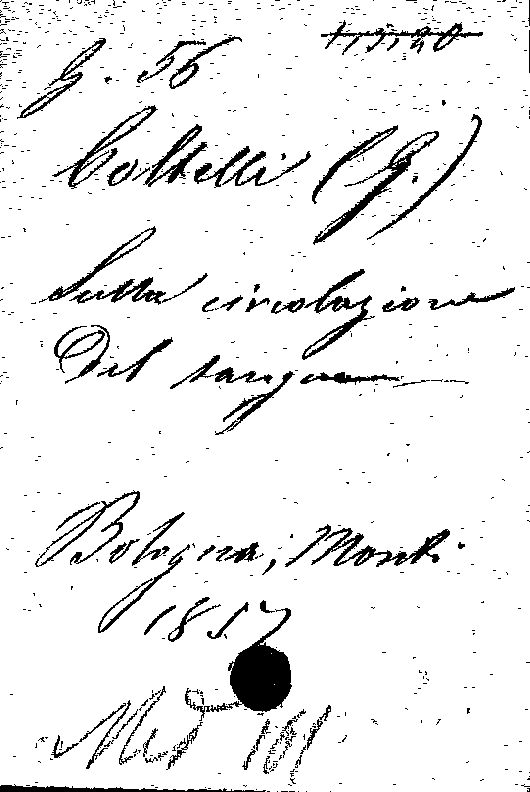 G. 56
Coltelli (G.)
Sulla circolazione
Del sangue
Bologna, Monti.
1857
Med 101